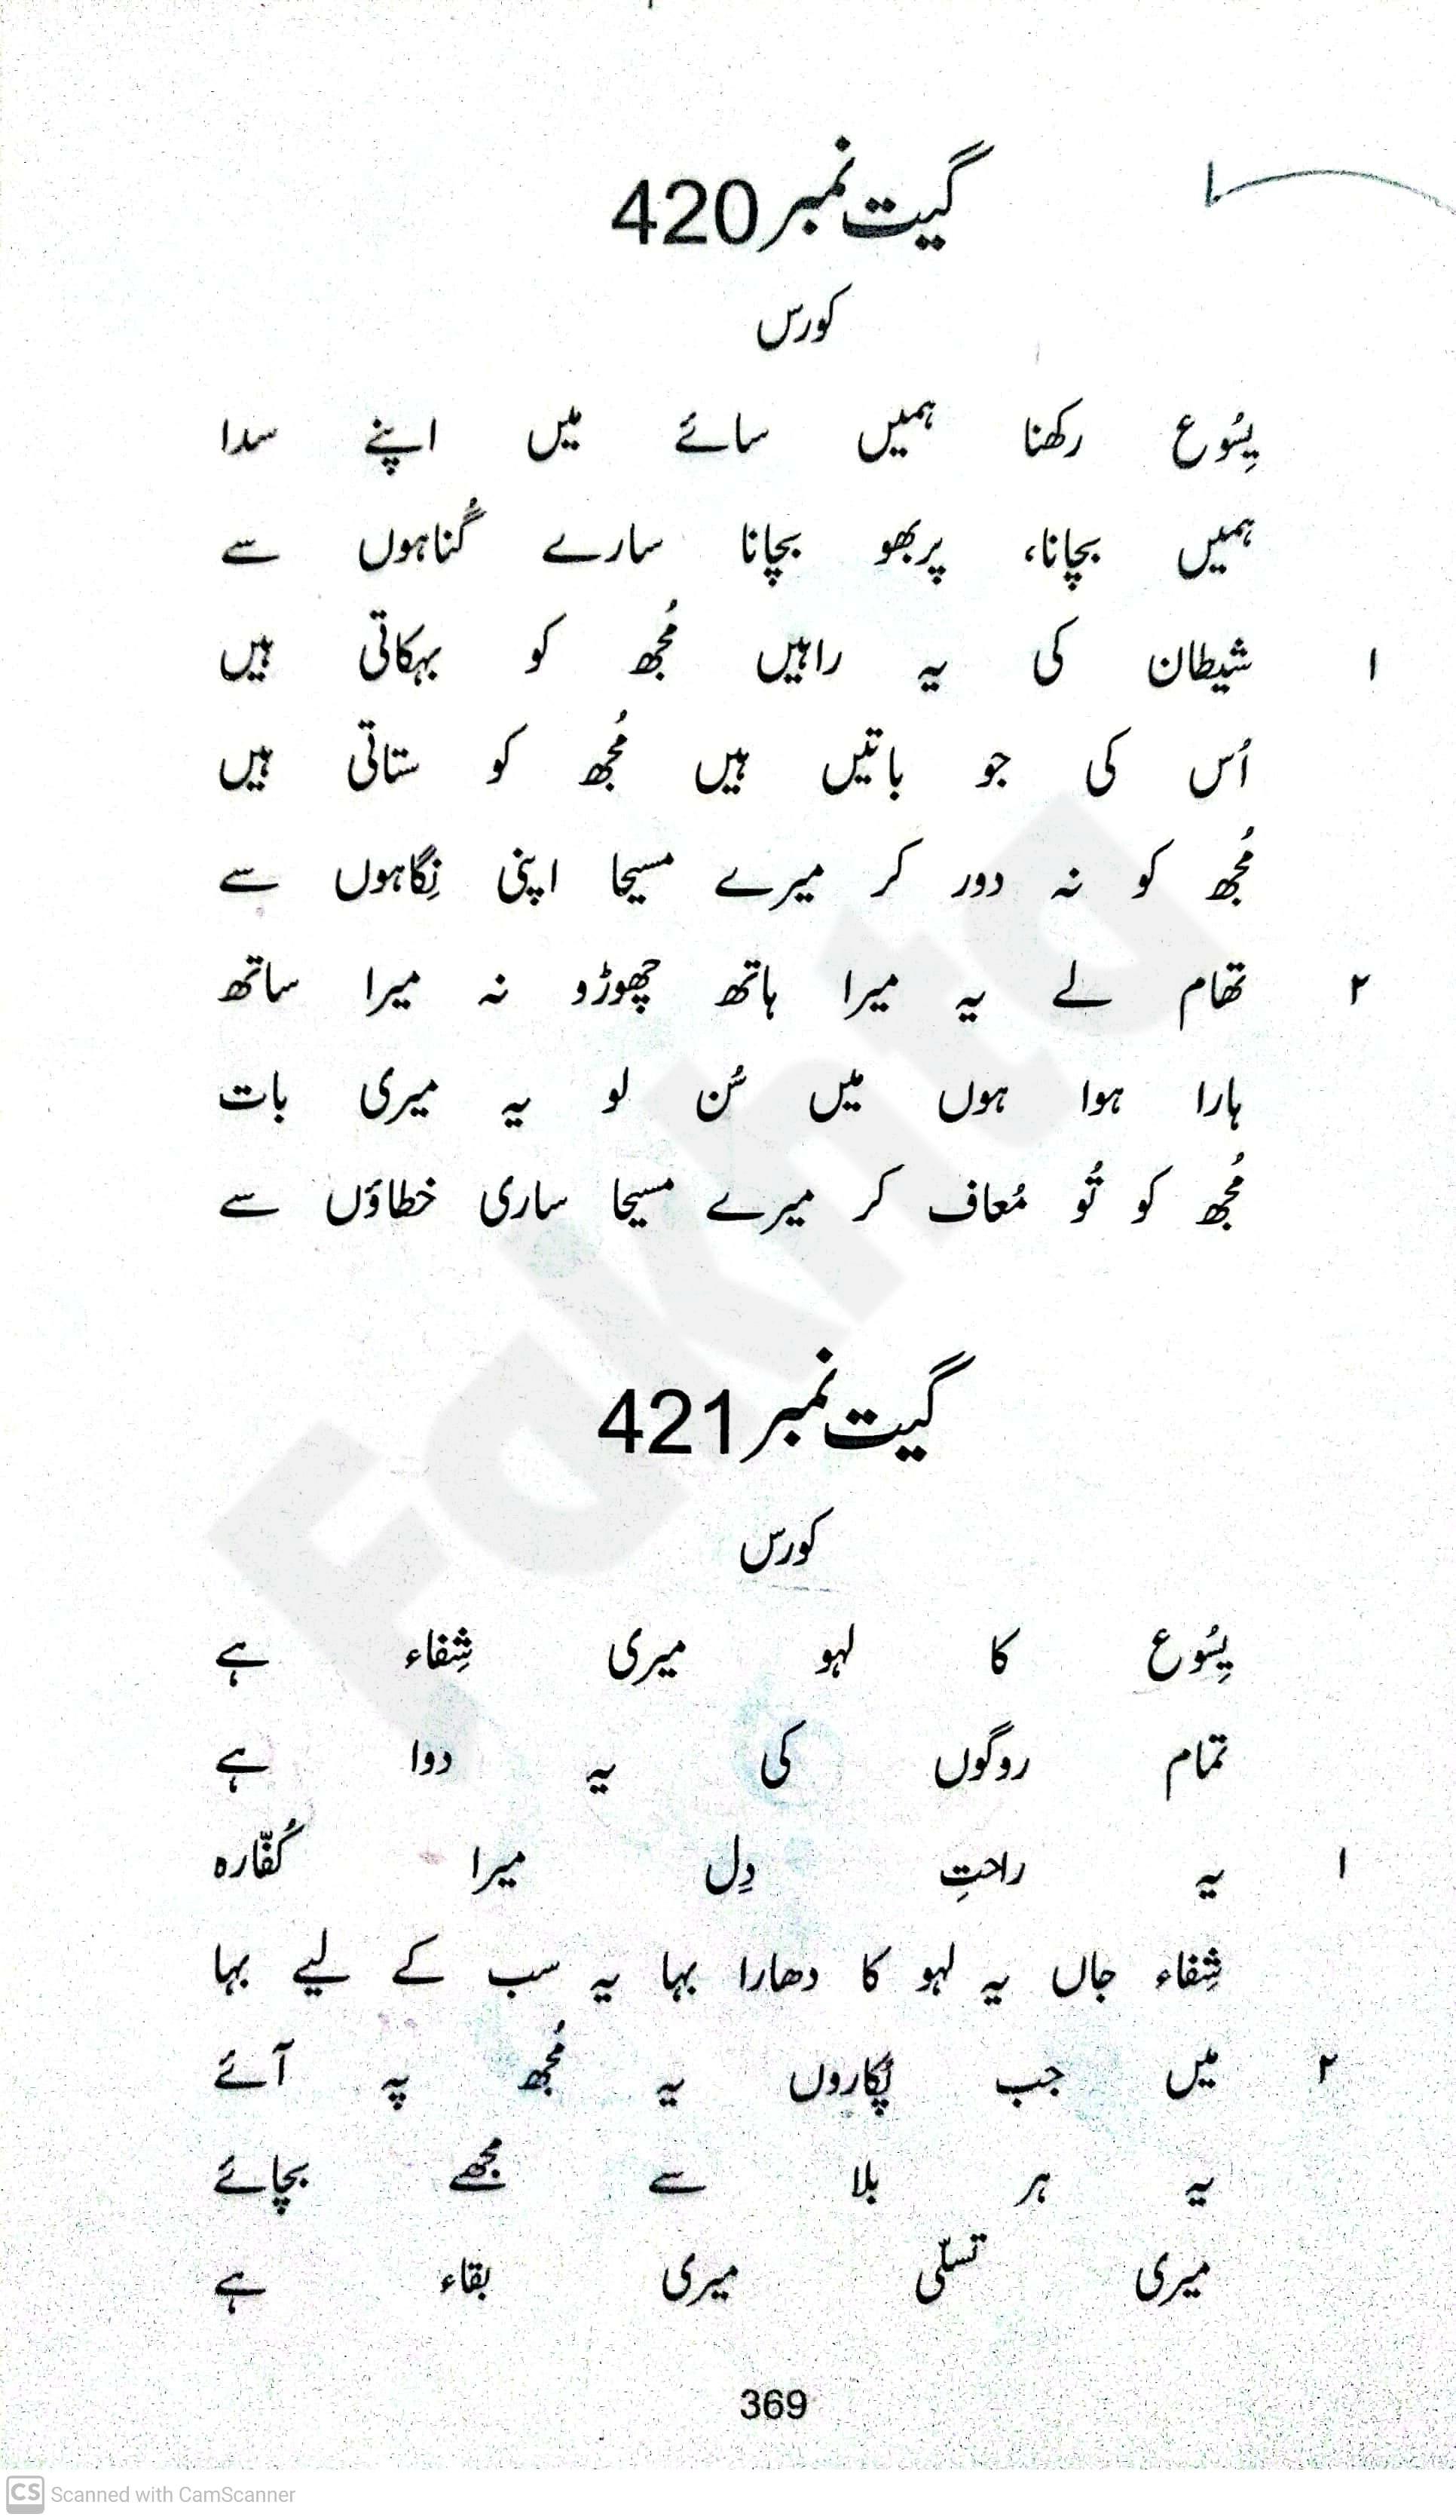 گیت نمبر 420
کورس
یِسُوع رکھنا ہمیں سائے میں اپنے سدا
ہمیں بچانا، پربھو بچانا سارے گُناہوں سے
۱ شیطان کی یہ راہیں مُجھ کو بہکاتی ہیں
اُس کی جو باتیں ہیں مُجھ کو ستاتی ہیں
مُجھ کو نہ دور کر میرے مسیحا اپنی نِگاہوں سے
۲ تھام لے یہ میرا ہاتھ چھوڑو نہ میرا ساتھ
ہارا ہوا ہوں میں سُن لو یہ میری بات
مُجھ کو تُو مُعاف کر میرے مسیحا ساری خطاؤں سے
گیت نمبر 421
کورس
یِسُوع کا لہو میری شِفاء ہے
تمام روگوں کی یہ دوا ہے
۱ یہ راحتِ دِل میرا کُفّارہ
شِفاء جاں یہ لہو کا دھارا بہا یہ سب کے لیے بہا
۲ میں جب پُکاروں یہ مُجھ پہ آئے
یہ ہر بلا سے مجھے بچائے
میری تسلّی میری بقاء ہے
369
Fakhta
CS Scanned with CamScanner